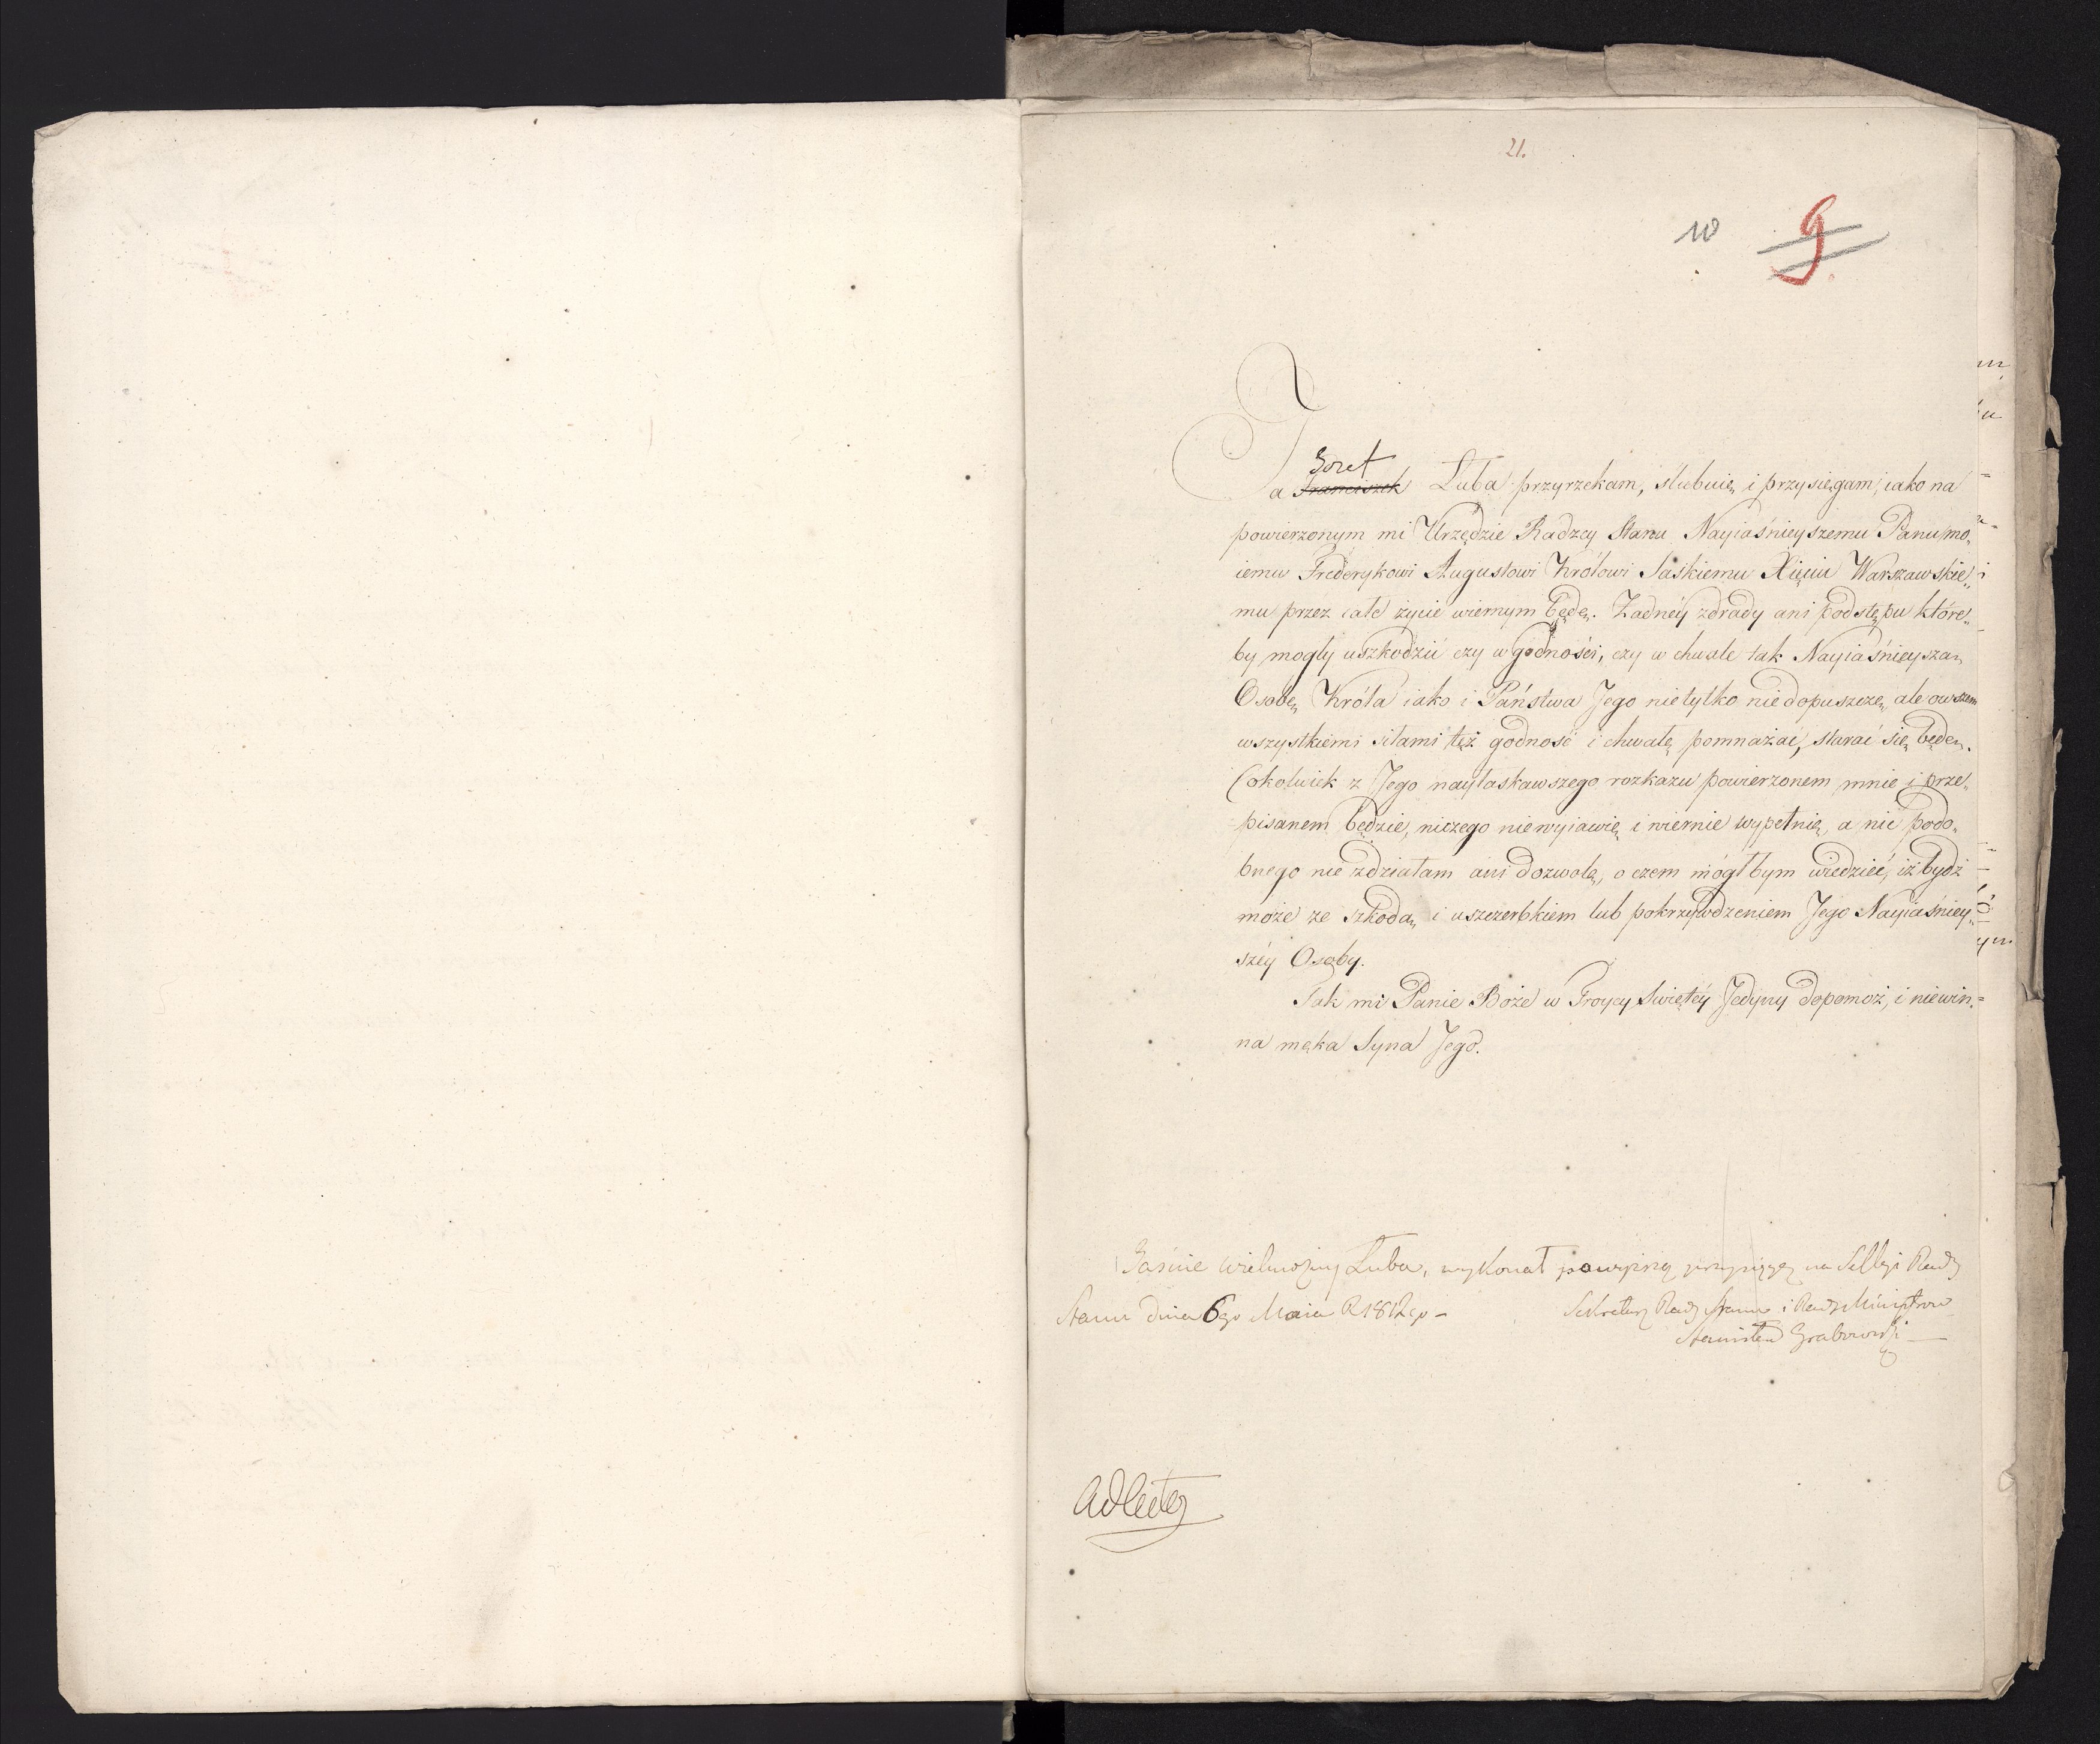 21.
10 9.
Jozef
Ja Franciszek Łuba przyrzekam, ślubuię i przysięgam, iako na
powierzonym mi Urzędzie Radzcy Stanu Nayiaśnieyszemu Panu mo„
iemu Frederykowi Augustowi Królowi Saskiemu Xięciu Warszawskie„
mu przez całe życie wiernym będę. Żadnéy zdrady ani podstępu które„
by mogły uszkodzić czy w godności, czy w chwale tak Nayiaśnieyszą
Osobę Króla iako i Państwa Jego nietylko niedopuszczę, ale owszem
wszystkiemi siłami też godność i chwałę pomnażać, starać się będę.
Cokolwiek z Jego nayłaskawszego rozkazu powierzonem mnie i prze„
pisanem będzie, niczego niewyiawię i wiernie wypełnię, a nic podo„
bnego nie zdziałam ani dozwolę, o czem mógłbym wiedzieć, iż bydź
może ze szkodą i uszczerbkiem lub pokrzywdzeniem Jego Nayiaśniey„
széy Osoby.
Tak mi Panie Boże w Troycy Swiętéy Jedyny dopomoż, i niewin„
na męka Syna Jego.
Jaśnie Wielmożny Łuba, wykonał powyższą przysięgę na Sessyi Rady
Stanu dnia 6go Maia R 1812go –
Sekretarz Rady Stanu i Rady Ministrow
Stanisław Grabowski